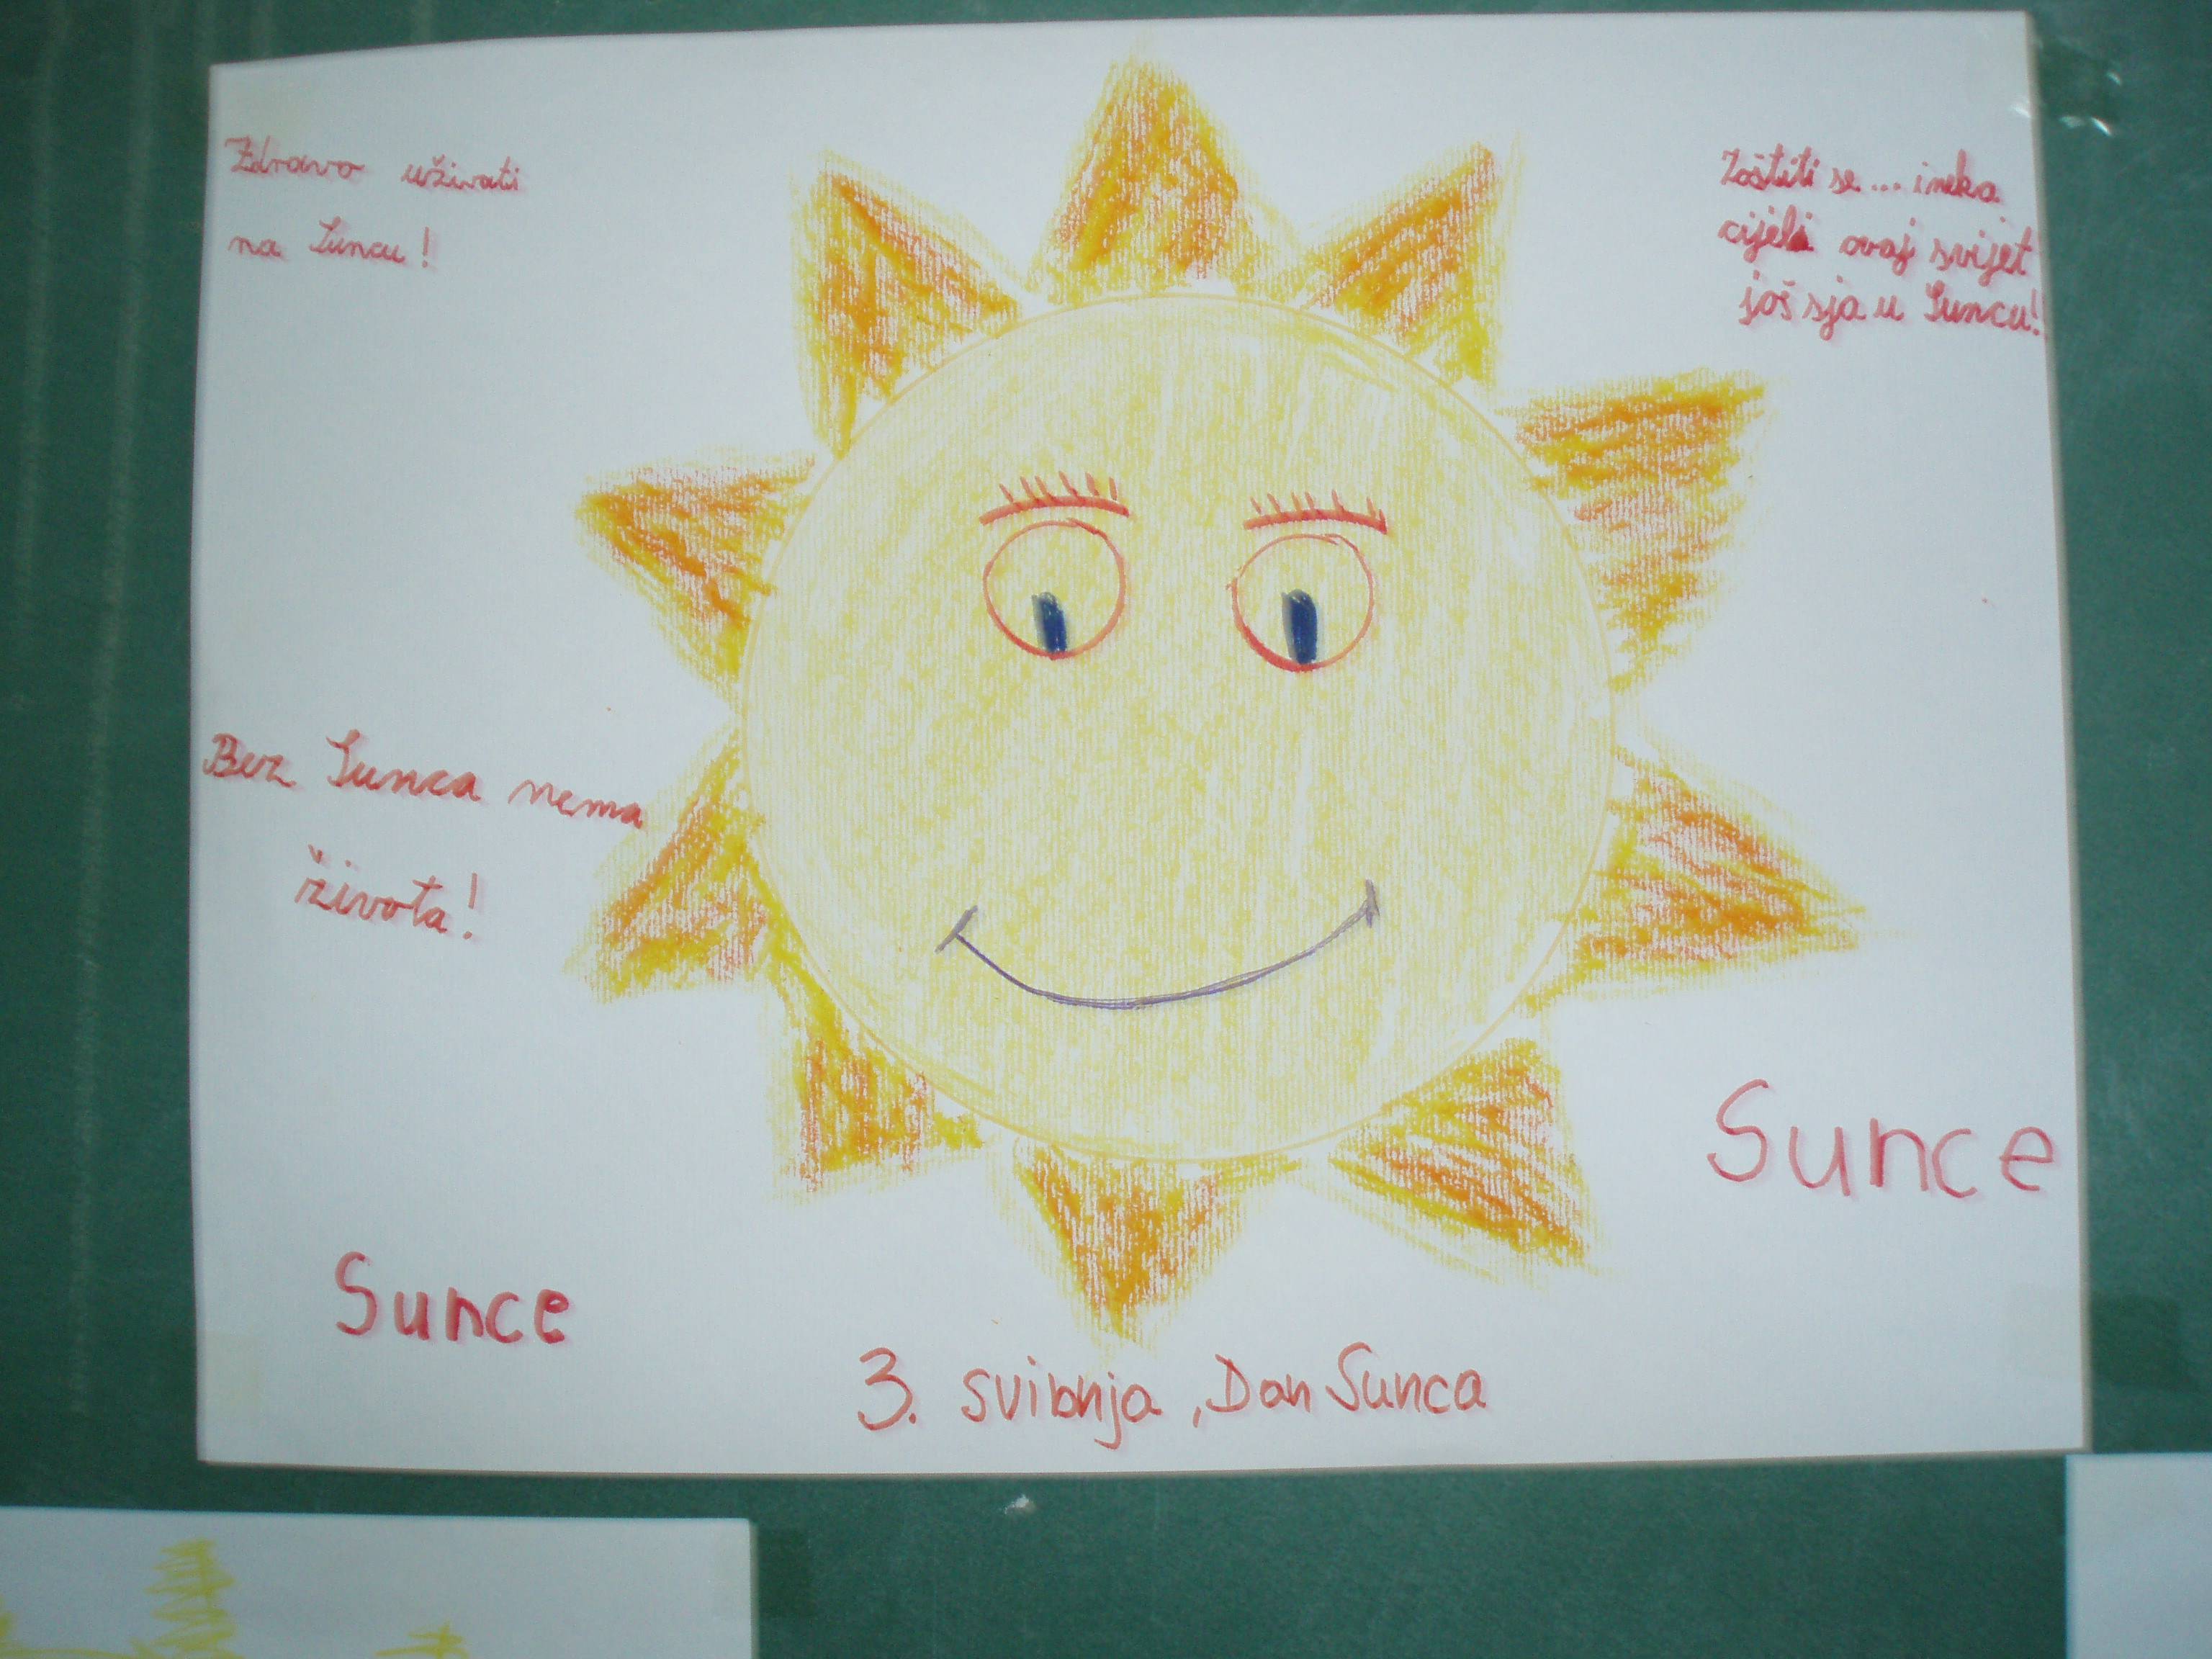 Zdravo uživati
na Suncu!
Zaštiti se... i neka
cijeli ovaj svijet
još sja u Suncu!
Bez Sunca nema
života!
Sunce
Sunce
3. svibnja, Dan Sunca